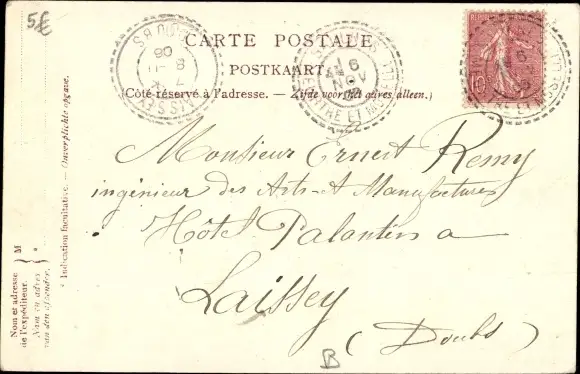 5€
CARTE POSTALE
POSTKAART
(Côté réservé à l'adresse. — Zijde voor het adres alleen.)
Monsieur Ernest Remy
ingénieur des Arts et Manufactures
Hôtel Palantins a
Laissey
(Doubs)
B
* Indication facultative. — Onverplichte opgave.
M
Nom et adresse
de l'expéditeur.
Naam en adres
van den afzender.
*
LAISSEY
DOUBS
MEURTHE ET MOSELLE
10